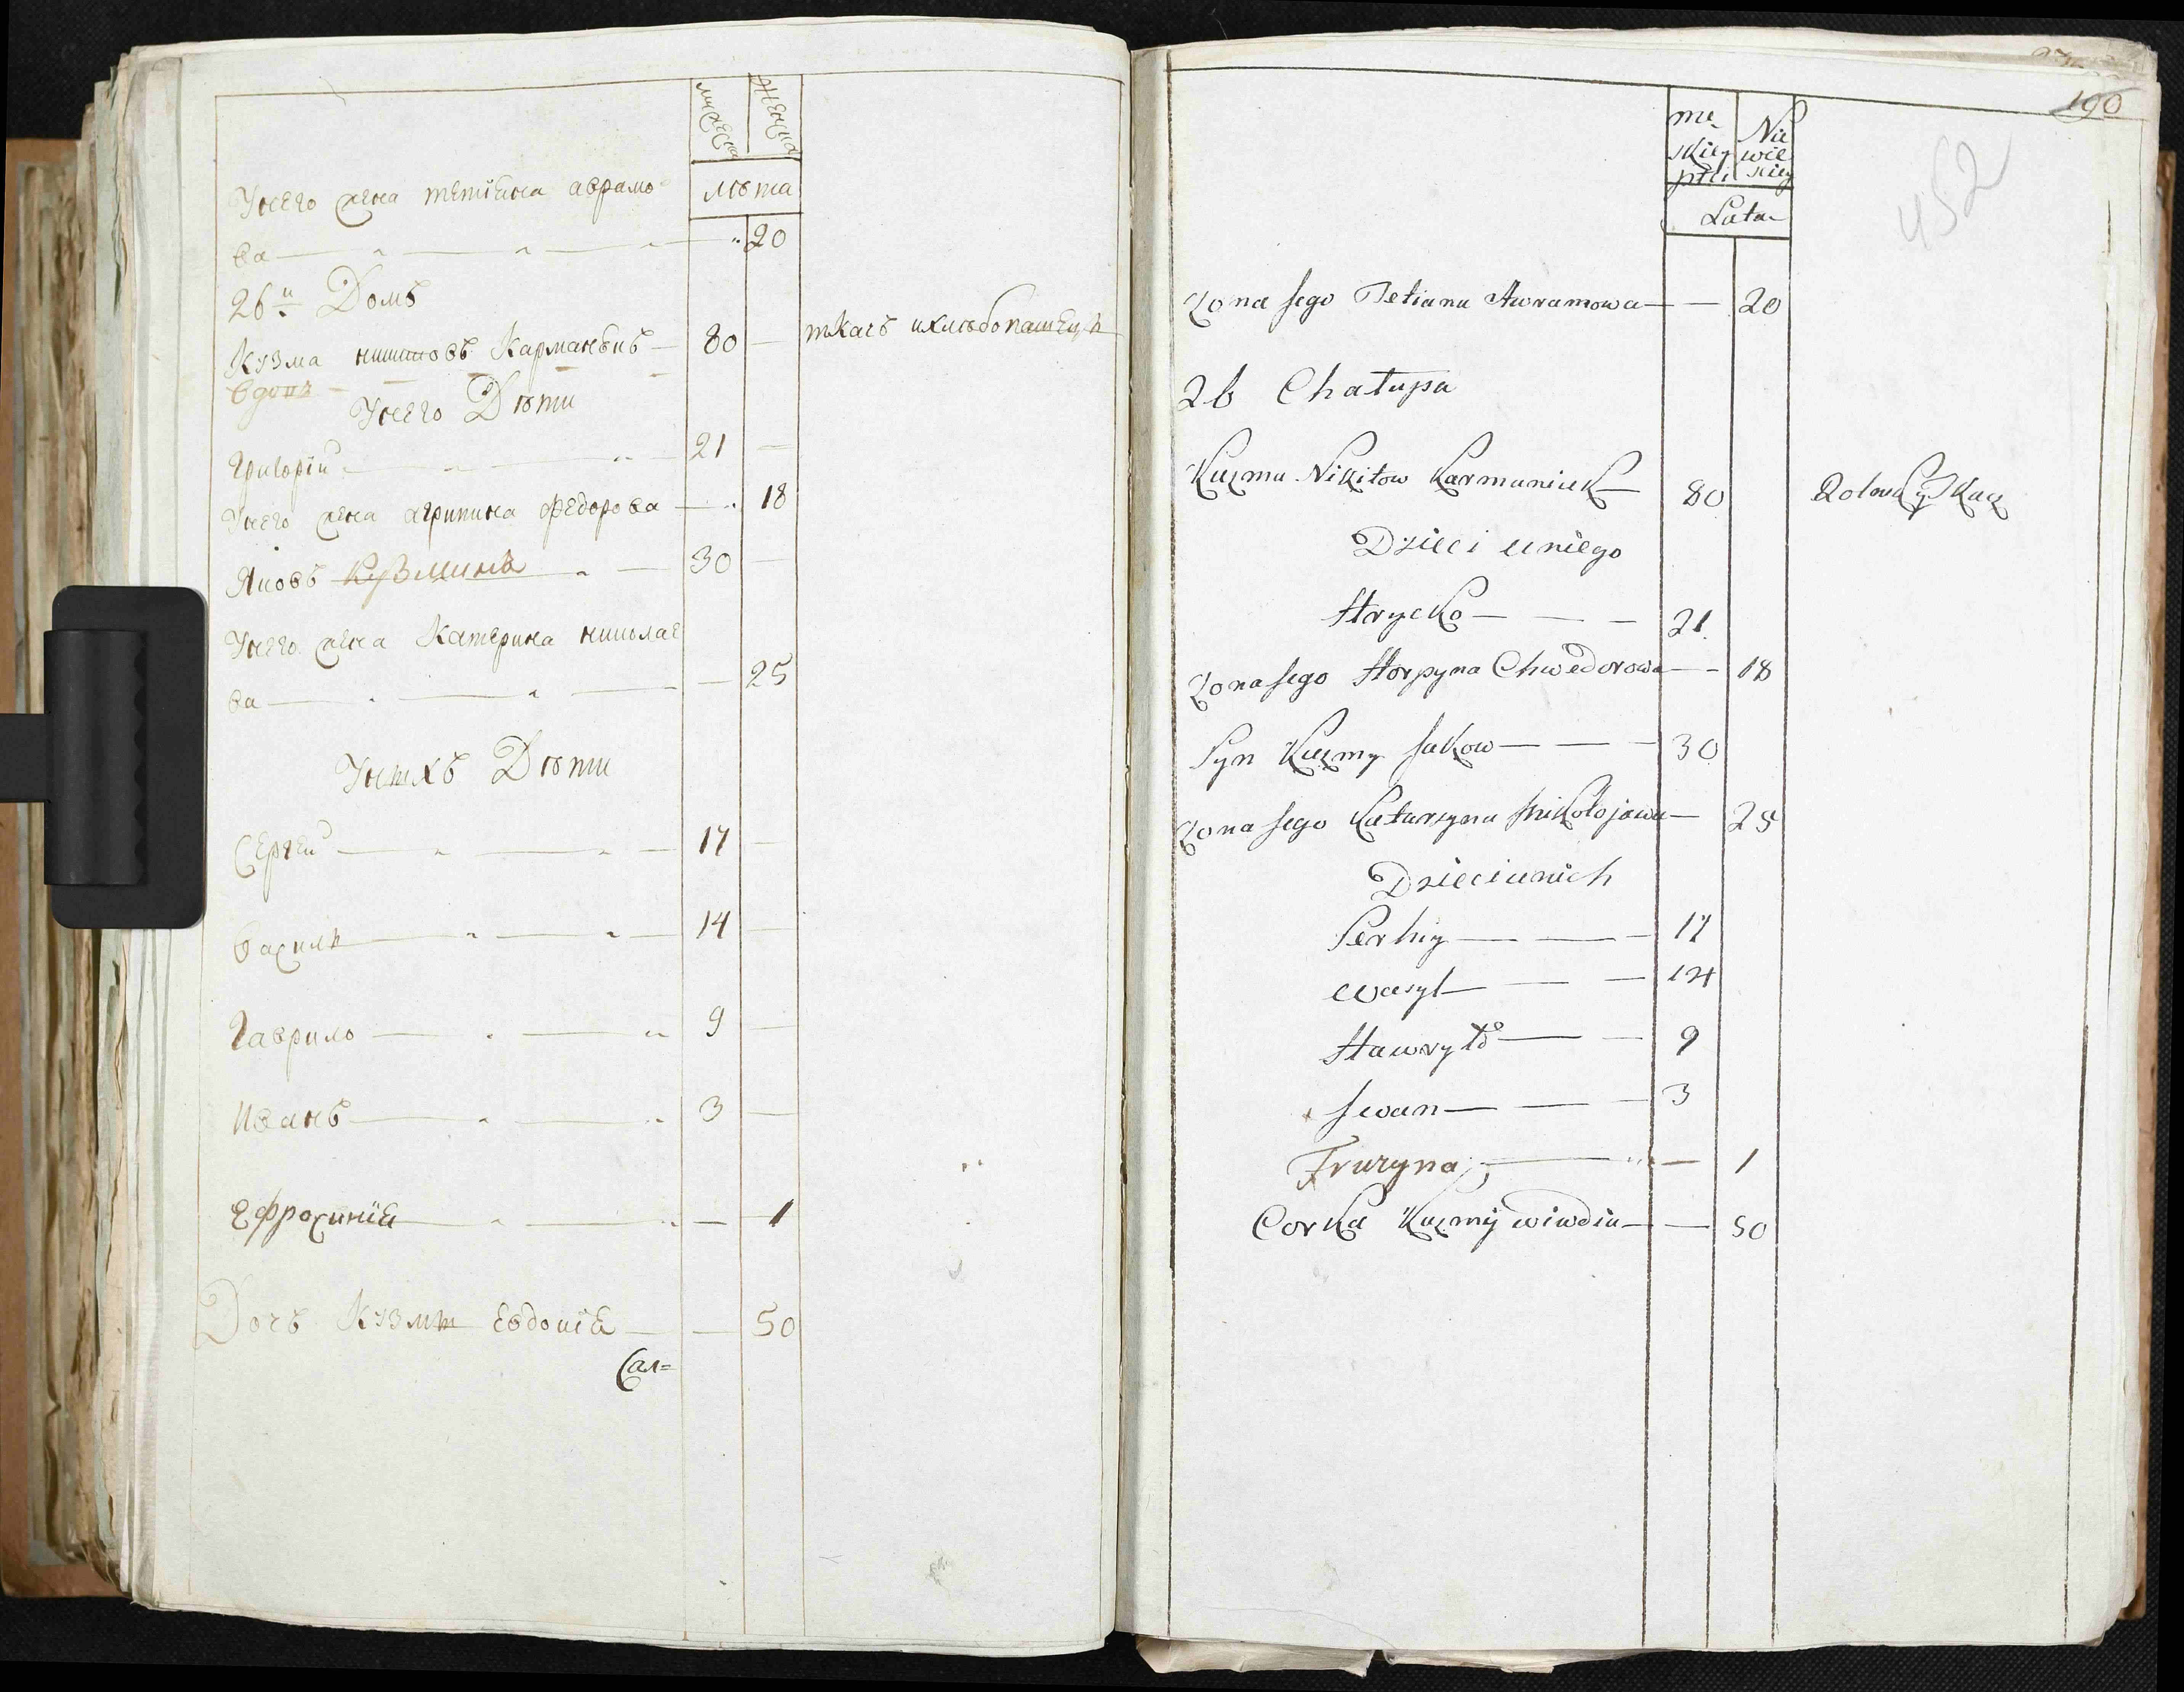 мужеска
женска
лѣта
Унего жена тетіяна аврамо
ва 20
26й Домъ
Кузма никитовъ Карманюкъ 80 ткачъ и хлѣбопашецъ
вдовъ
Унего Дѣти
Григорій 21
Унего жена агрипина федорова 18
Яковъ Кузминъ 30
Унего жена Катерина николае
ва 25
Унихъ Дѣти
Сергей 17
василь 14
Гаврило 9
Иванъ 3
Ефросинія 1
Дочь Кузмы Евдокія 50
Сал=
190
452
mę-
skiey
płci
Nie
wie
skiey
Lata
Zona Jego Tetiana Awramowa 20
26 Chałupa
Kuzma Nikitow Karmaniuk 80 Rolnik y Tkacz
Dzieci u niego
Hrycko 21
Zona Jego Horpyna Chwedorowa 18
Syn Kuzmy Jakow 30
Zona Jego Katarzyna Mikołojowa 25
Dzieci u nich
Serhiy 17
Wasyl 14
Hawryło 9
Iwan 3
Fruzyna 1
Corka Kuzmy Wiwdia 50